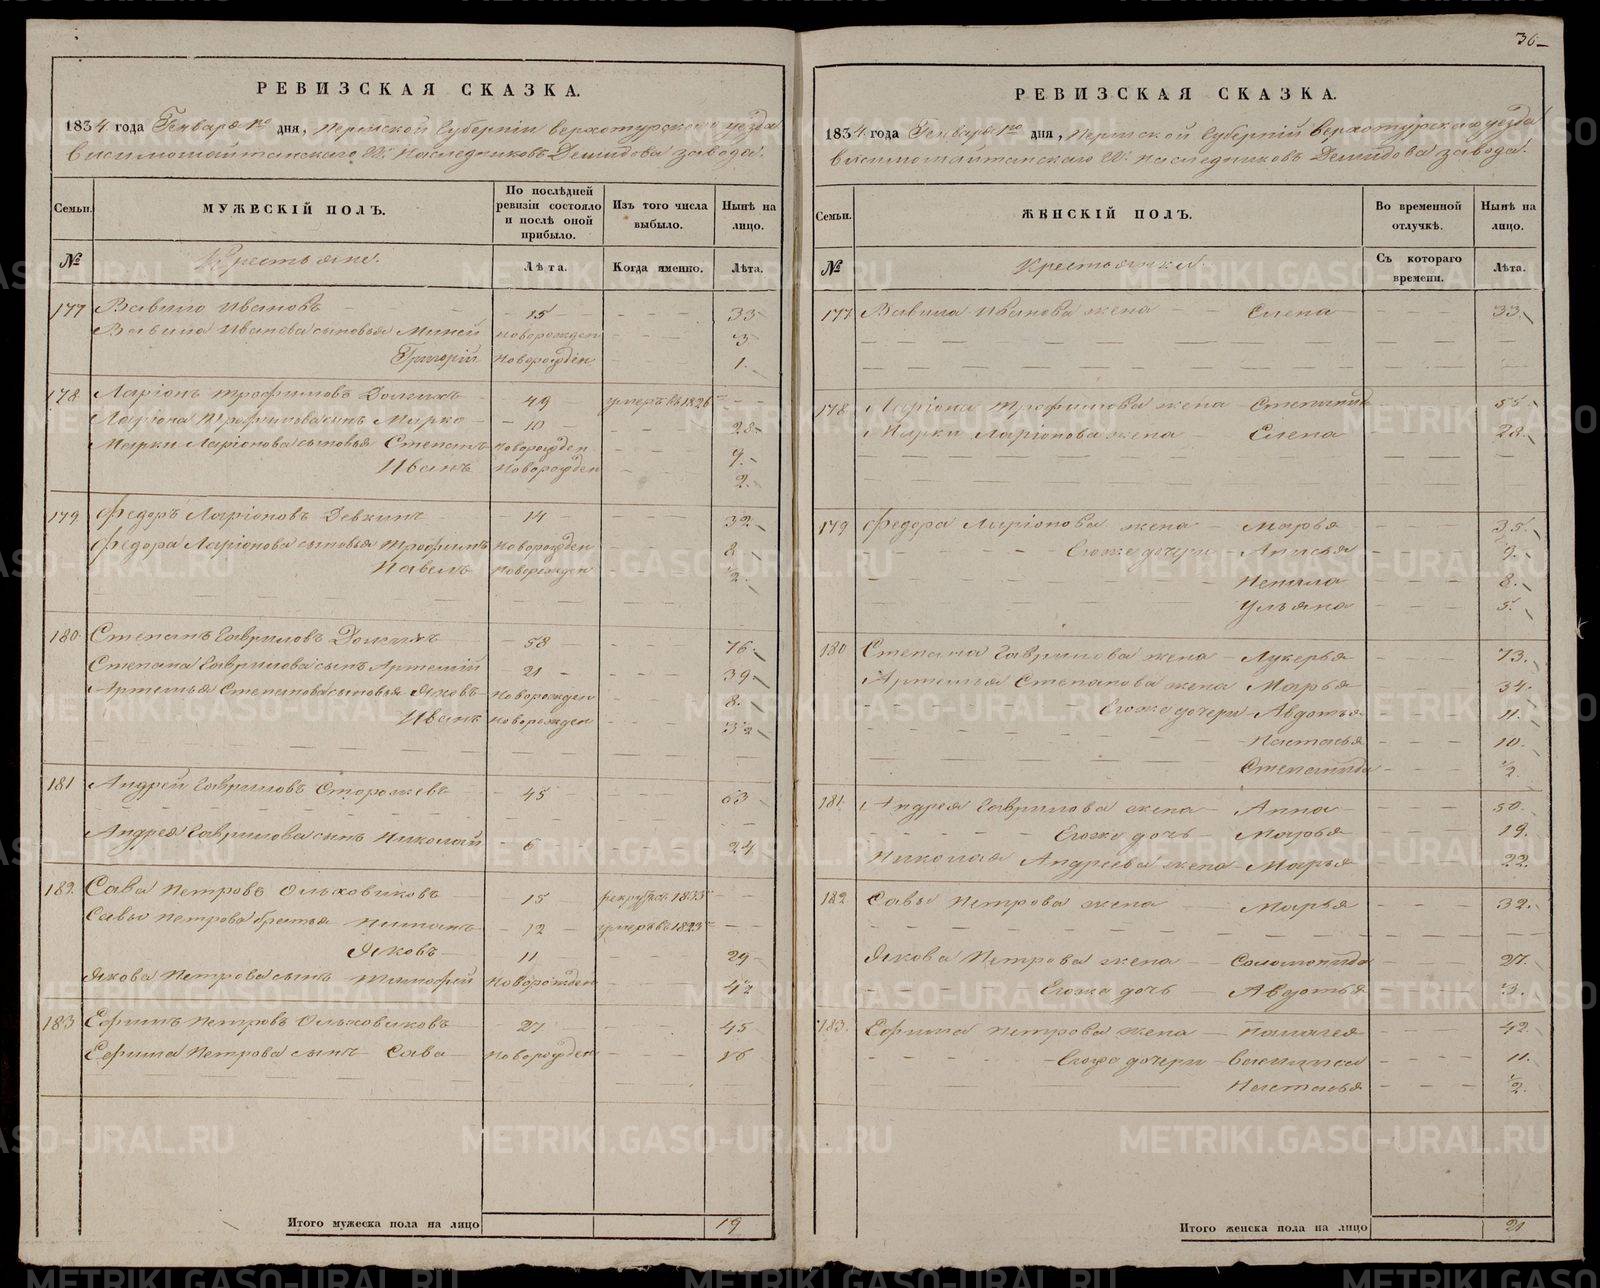 36
РЕВИЗСКАЯ СКАЗКА.
1834 года Генваря дня, Пермской Губернiи верхотурскаго уезда
висимошайтанскаго Наследниковъ Демидова завода.
Семьи.
МУЖЕСКIЙ ПОЛЪ.
По послѣдней ревизiи состояло и послѣ оной прибыло.
Изъ того числа выбыло.
Нынѣ на лицо.
№
Крестьяне.
Лѣта.
Когда именно.
Лѣта.
177 Вавило Ивановъ 15 33
Вавила Иванова сыновья Миней новорожден 3
Григорiй Новорожден 1.
178. Ларiонъ трофимовъ 49 умеръ въ 1826
Ларiона трофимова сынъ Марко 10 28
Марки Ларiонова сыновья Степанъ Новорожден 9.
Иванъ Новорожден 2.
179 Федоръ Ларiоновъ 14 32
Федора Ларiонова сыновья трофимъ Новорожден 8
Павелъ Новорожден ½
180 Степанъ Гавриловъ 58 76
Степана Гаврилова сынъ Артемiй 21 39
Артемья Степанова сыновья Яковъ Новорожден 8.
Иванъ Новорожден 3½
181 Андрей Гавриловъ Сторожевъ 45 63
Андрея Гаврилова сынъ Николай 6 24
182. Сава Петровъ Ольховиковъ 15 1833
Савы Петрова братья 12 умеръ въ 1823
Яковъ 11 29
Якова Петрова сынъ Тимофей Новорожден 4½
183 Ефимъ Петровъ Ольховиковъ 27 45
Ефима Петрова сынъ Сава Новорожден 16
Итого мужеска пола на лицо 19
РЕВИЗСКАЯ СКАЗКА.
1834 года Генваря дня, Пермской Губернiй Верхотурскаго уезда
висимошайтанскаго Наследниковъ Демидова завода.
Семьи.
ЖЕНСКIЙ ПОЛЪ.
Во временной отлучкѣ.
Нынѣ на лицо.
№
Крестьянки.
Съ котораго времени.
Лѣта.
177 Вавила Иванова жена Елена 33
178. Ларiона трофимова жена Степанида 55
Марки Ларiонова жена Елена 28
179 Федора Ларiонова жена Марья 35
Егоже дочери Анисья 9.
Ненила 8.
Ульяна 5.
180 Степана Гаврилова жена Лукерья 73.
Артемья Степанова жена Марья 34.
Егоже дочери Авдотья 11.
Настасья 10.
Степанида ½
181. Андрея Гаврилова жена Анна 50.
Егоже дочь Марья 19.
Николая Андреева жена Марья 22.
182 Савы Петрова жена Марья 32.
Якова Петрова жена Соломонида 27.
Егоже дочь Авдотья 3.
183. Ефима Петрова жена Палагея 42.
Егоже дочери Василиса 11.
Настасья ½
Итого женска пола на лицо 21
METRIKI.GASO-URAL.RU